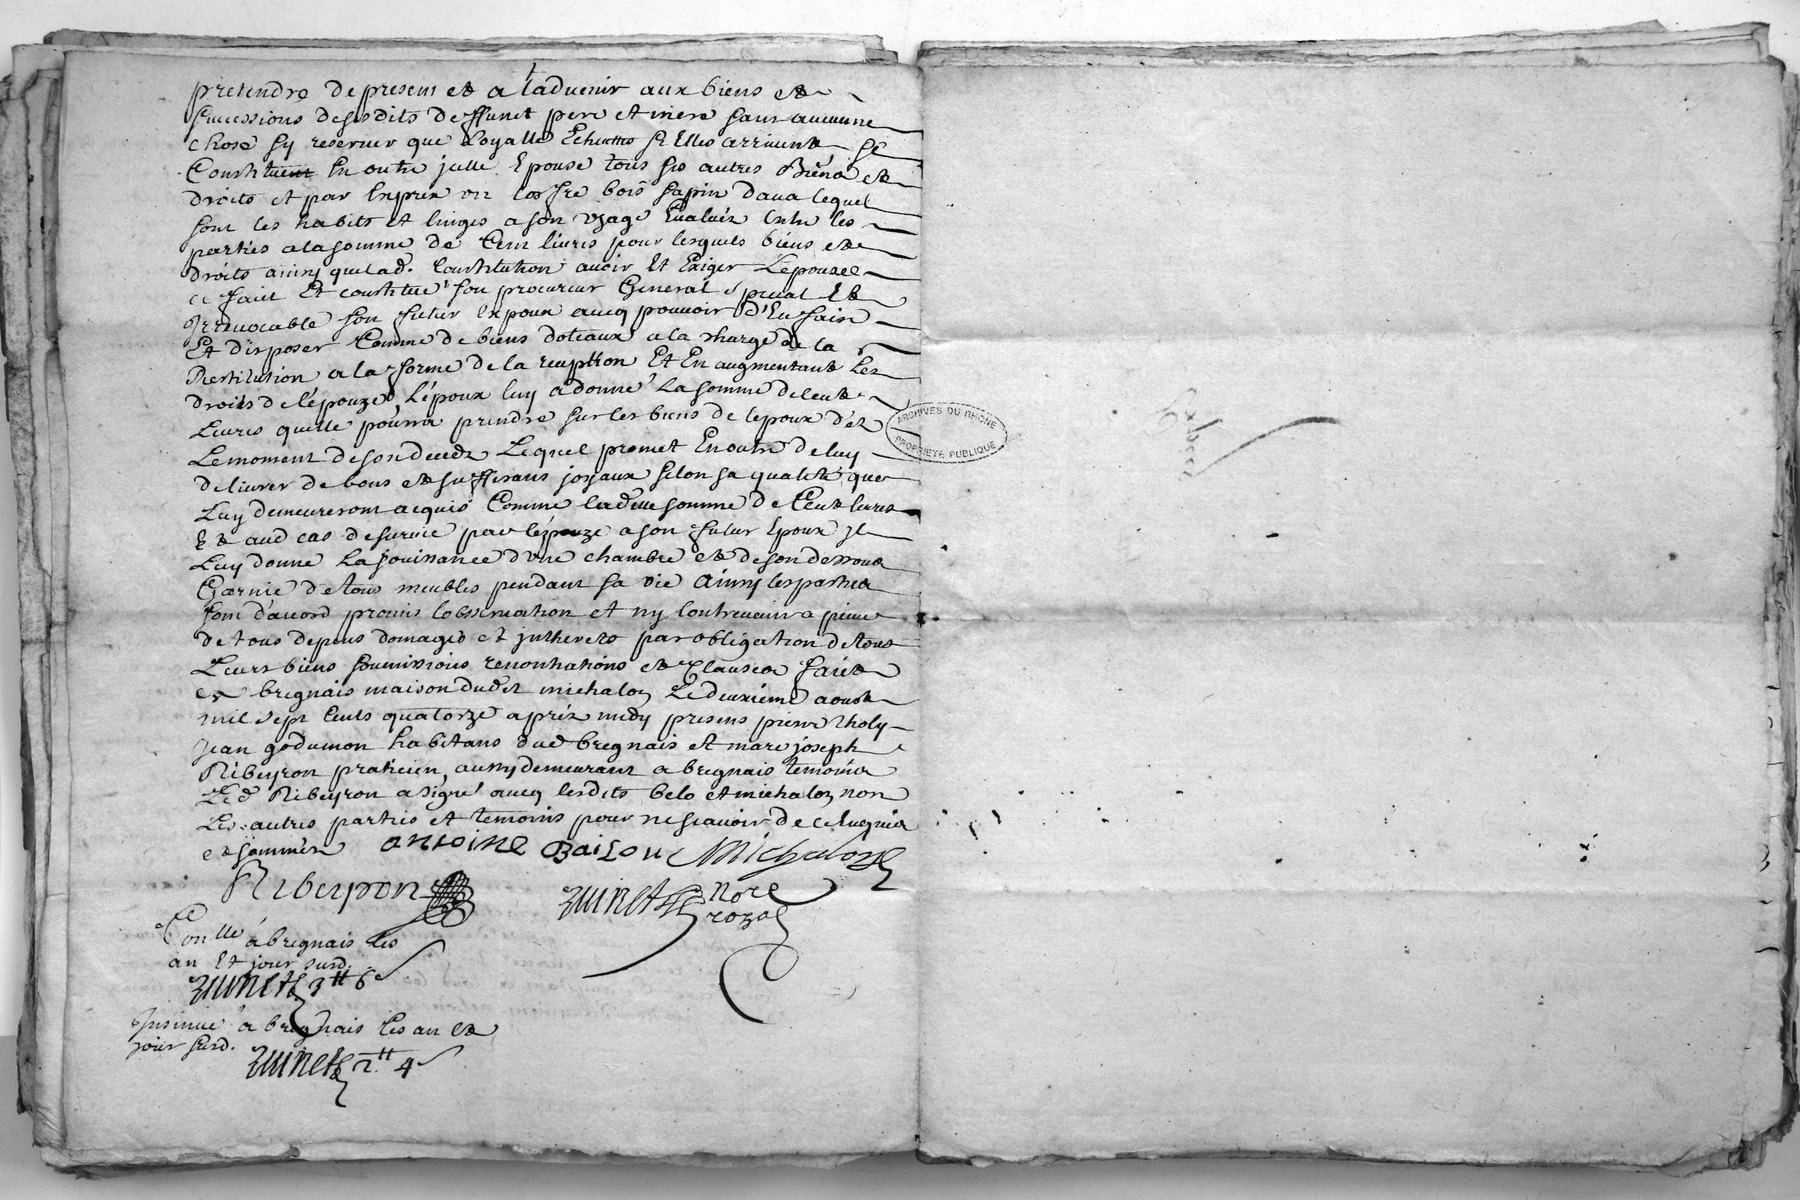 pretendre de present et a ladvenir aux biens et
successions desdits deffunct pere et mere sans aucune
chose sy reserver que loyalle Echuttes sy Elles arrivent se
Constituent En outre jcelle Epouse tous ses autres Biens et
droits et par Exprex un coffre bois sapin dans lequel
sont les habits et linges a son usage Evaluéz Entre les
parties a la somme de Cent livres pour lesquels biens et
droits ainsy que lad. Constitution avoir Et Exiger Lepouze
a fait Et constitué son procureur General special Et
Irrevocable son futur Expoux avecq pouvoir d'En faire
Et disposer Comme de biens doteaux a la charge de la
Restitution a la forme de la reception Et En augmentant Les
droits de l'épouze L'époux luy a donné La somme de cent
Livres quelle pourra prendre sur les biens de lepoux d'éz
Le moment de son decedz Lequel promet En outre de luy
delivrer de bons et suffisans joyaux selon sa qualité que
Luy demeureront acquis Comme ladette somme de Cent livres
Et aud cas de survie par lépouze a son futur Epoux jl
Luy donne La jouissance d'une chambre et de son dessous
Garnie de tous meubles pendant sa vie Ainsy les parties
sont d'acord promis lobservation et ny Contrevenir a peine
de tous depens domages et jntherets par obligation de tous
Leurs biens soumissions renontiations et Clauses fait
et bregnais maison dudet michalon Le deuxieme aoust
mil sept Cents quatorze apréz midy presens pierre
jean godumon habitans dud bregnais et marc joseph
Ribeyron praticien, aussy demeurant a bregnais temoins
Led Ribeyron a signé avecq lesdits belo et michalon non
Les autres parties et temoins pour ne scavoir de ce Enquis
et sommés antoine Baizou Michalon
Ribeyron
not re
royal
Con lle á bregnais les
an Et jour susd.
3 tt 6
Insinué á bregnais les an et
jour susd.
2 tt 4
ARCHIVES DU RHÔNE
PROPRIÉTÉ PUBLIQUE